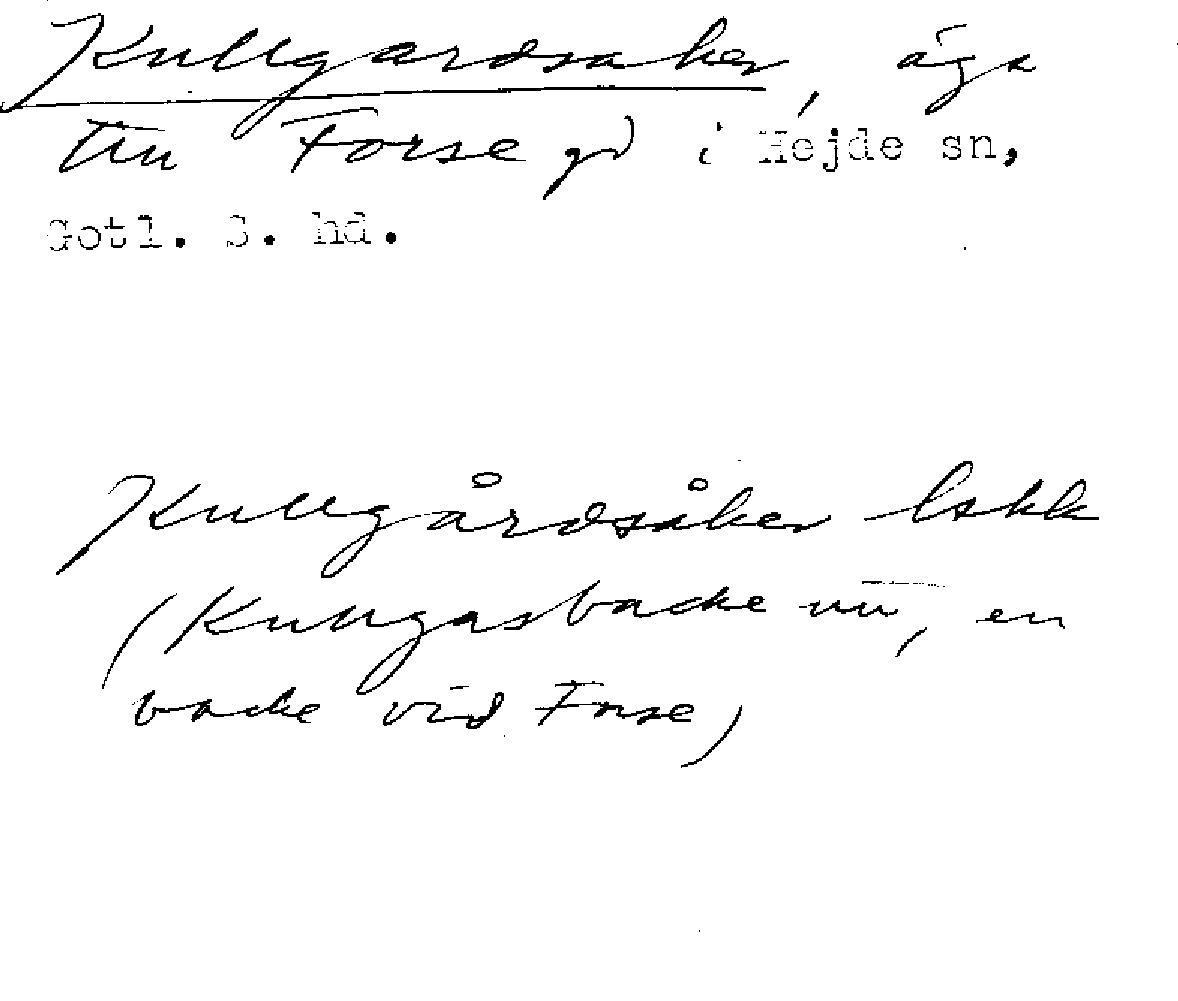 Kullgardsaker, äga
till Forse gd i Hejde sn,
Gotl. S. hd.
Kullgårdsåker Lskk
(Kullgasbacke nu, en
backe vid Forse)